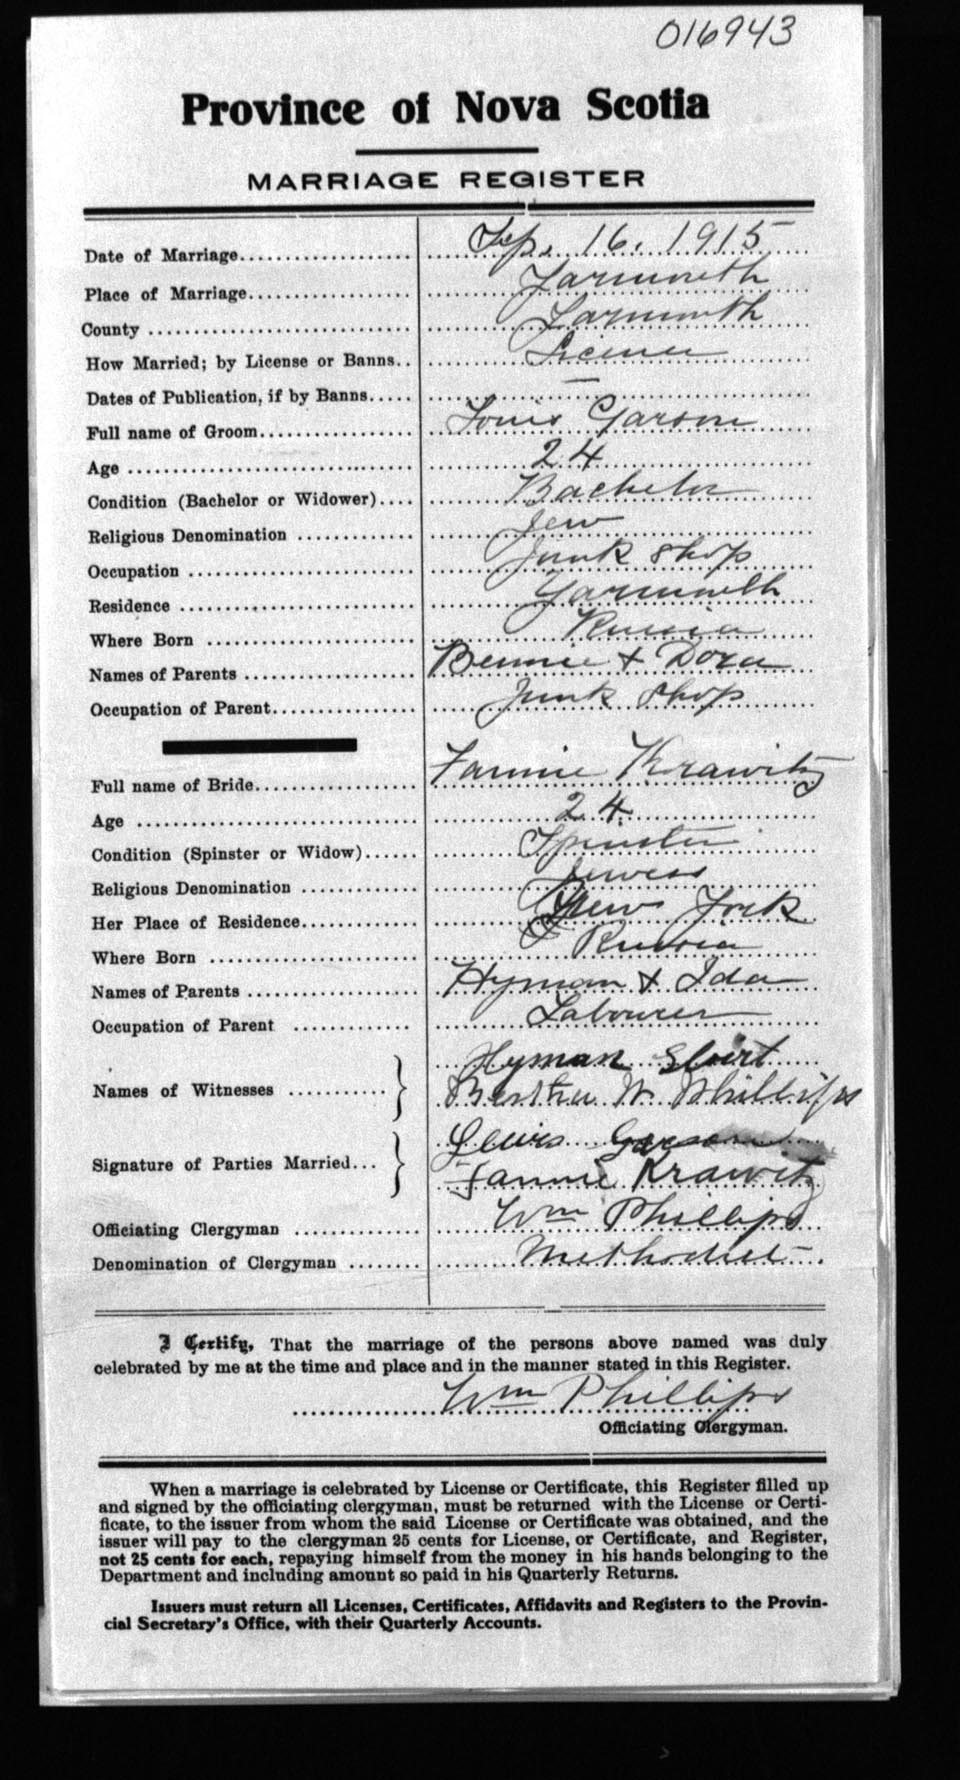 016943
Province of Nova Scotia
MARRIAGE REGISTER
Date of Marriage.................... Sep. 16. 1915
Place of Marriage................... Yarmouth
County ............................. Yarmouth
How Married; by License or Banns.. License
Dates of Publication, if by Banns..... —
Full name of Groom................. Louis Garson
Age ................................ 24
Condition (Bachelor or Widower).... Bachelor
Religious Denomination ............. Jew
Occupation ......................... Junk Shop
Residence .......................... Yarmouth
Where Born ........................ Russia
Names of Parents ................... Bennie + Dora
Occupation of Parent................ Junk Shop
Full name of Bride.................. Fannie Krawitz
Age ................................ 24
Condition (Spinster or Widow)...... Spinster
Religious Denomination ............. Jewess
Her Place of Residence.............. New York
Where Born ........................ Russia
Names of Parents ................... Hyman + Ida
Occupation of Parent ............. Labourer
Hyman
Names of Witnesses ........... } Bertha W. Phillips
Louis Garson
Signature of Parties Married... } Fannie Krawitz
Officiating Clergyman .............. Wm Phillips
Denomination of Clergyman ........ Methodist
I Certify, That the marriage of the persons above named was duly
celebrated by me at the time and place and in the manner stated in this Register.
Wm Phillips
Officiating Clergyman.
When a marriage is celebrated by License or Certificate, this Register filled up
and signed by the officiating clergyman, must be returned with the License or Certi-
ficate, to the issuer from whom the said License or Certificate was obtained, and the
issuer will pay to the clergyman 25 cents for License, or Certificate, and Register,
not 25 cents for each, repaying himself from the money in his hands belonging to the
Department and including amount so paid in his Quarterly Returns.
Issuers must return all Licenses, Certificates, Affidavits and Registers to the Provin-
cial Secretary's Office, with their Quarterly Accounts.